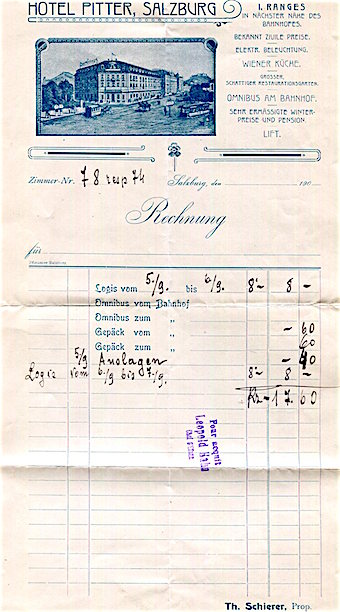 HOTEL PITTER, SALZBURG
I. RANGES
IN NÄCHSTER NÄHE DES
BAHNHOFES.
BEKANNT ZIVILE PREISE.
ELEKTR. BELEUCHTUNG.
WIENER KÜCHE.
GROSSER,
SCHATTIGER RESTAURATIONSGARTEN.
OMNIBUS AM BAHNHOF.
SEHR ERMÄSSIGTE WINTER-
PREISE UND PENSION.
LIFT.
Zimmer-Nr. 78 resp 74 Salzburg, den 190
Rechnung
für
Logis vom 5./9. bis 6./9. 8 - 8 -
Omnibus vom Bahnhof
Omnibus zum „
Gepäck vom „ - 60
Gepäck zum „ 60
5/9 Auslagen - 40
Logis vom 6./9 bis 7./9. 8 - 8 -
Kr - 17.60
Pour acquit
Leopold Hahn
Th. Schierer, Prop.